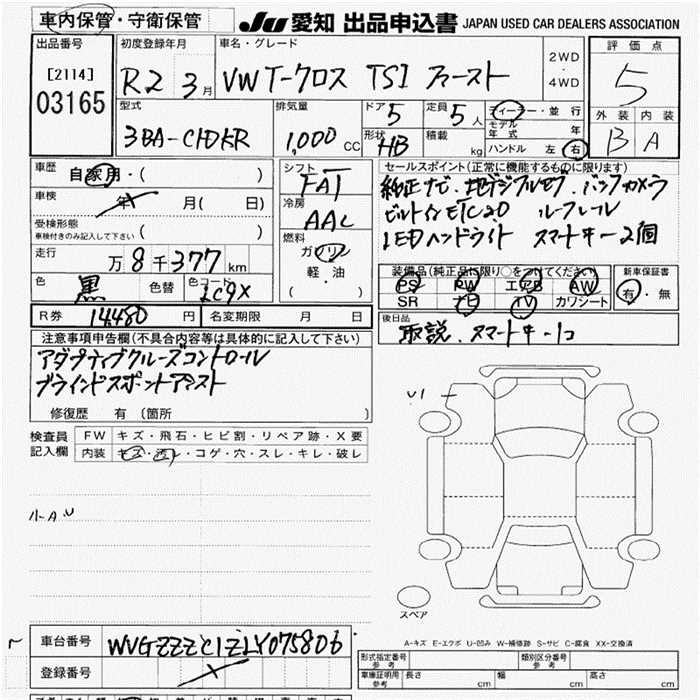 車内保管・守衛保管
JU 愛知 出品申込書 JAPAN USED CAR DEALERS ASSOCIATION
出品番号
[2114]
03165
初度登録年月
R2 3月
車名・グレード
VW T-クロス TSI ファースト
2WD
・
4WD
評価点
5
外装 内装
B A
型式
3BA-C1DKR
排気量
1,000 CC
ドア 5
形状 HB
定員 5 人
積載 kg
ディーラー・並行
モデル年式 年
ハンドル 左 右
車歴
自家用・( )
車検
年 月( 日)
受検形態
車検付きのみ記入して下さい ( )
走行
万 8 千 377 km
色 黒 色替 色コード LC9X
シフト
FAT
冷房
AAC
燃料
ガソリン
軽・油
( )
セールスポイント(正常に機能するものに限ります)
純正ナビ.地デジフルセグ.バックカメラ
ビルトインETC2.0 ルーフレール
LEDヘッドライト スマートキー2個
装備品(純正品に限り○をつけてください)
PS PW エアB AW
SR ナビ TV カワシート
新車保証書
有・無
R券 14,480 円 名変期限 月 日
後日品
取説.スマートキー1コ
注意事項申告欄(不具合内容等は具体的に記入して下さい)
アダプティブクルーズコントロール
ブラインドスポットアシスト
修復歴 有 (箇所 )
検査員
記入欄
FW キズ・飛石・ヒビ割・リペア跡・X要
内装 キズ・汚レ・コゲ・穴・スレ・キレ・破レ
U1
小A U
スペア
A-キズ E-エクボ U-凹み W-補修跡 S-サビ C-腐食 XX-交換済
車台番号 WVGZZZC1ZLY075806
登録番号
形式指定番号
参考
類別区分番号
参考
車庫証明用
参考
長さ cm 幅 cm 高さ cm